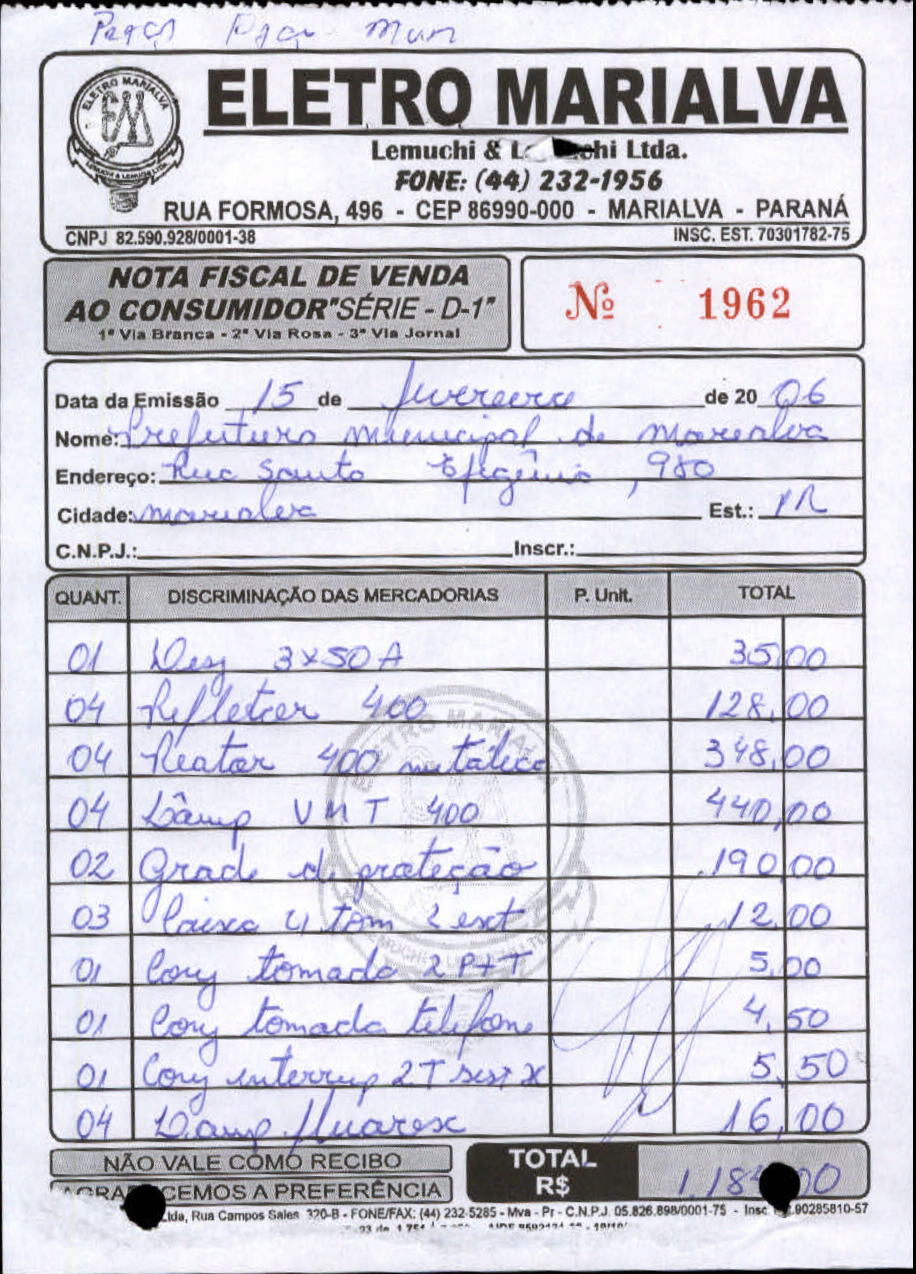 Peças Paço Mun
ELETRO MARIALVA
Lemuchi & hi Ltda.
FONE: (44) 232-1956
RUA FORMOSA, 496 - CEP 86990-000 - MARIALVA - PARANÁ
CNPJ 82.590.928/0001-38 INSC. EST. 70301782-75
NOTA FISCAL DE VENDA
AO CONSUMIDOR "SÉRIE - D-1"
1ª Via Branca - 2ª Via Rosa - 3ª Via Jornal
Nº 1962
Data da Emissão 15 de fevereiro de 20 06
Nome: Prefeitura municipal de marialva
Endereço: Rua Santa Efigênia, 980
Cidade: marialva Est.: PR
C.N.P.J.: Inscr.:
QUANT. DISCRIMINAÇÃO DAS MERCADORIAS P. Unit. TOTAL
01 Disj 3x50A 35,00
04 Refletor 400 128,00
04 Reator 400 metálico 348,00
04 Lâmp VMT 400 440,00
02 Grade de proteção 190,00
03 Caixa 4 tom 2 ext 12,00
01 Conj tomada 2P+T 5,00
01 Conj tomada telefone 4,50
01 Conj interrup 2T sist X 5,50
04 Lamp fluoresc 16,00
NÃO VALE COMO RECIBO
TOTAL R$ 1.18 00
AGRA CEMOS A PREFERÊNCIA
Ltda, Rua Campos Sales 320-B - FONE/FAX: (44) 232-5285 - Mva - Pr - C.N.P.J. 05.826.898/0001-75 - Insc. 90285810-57